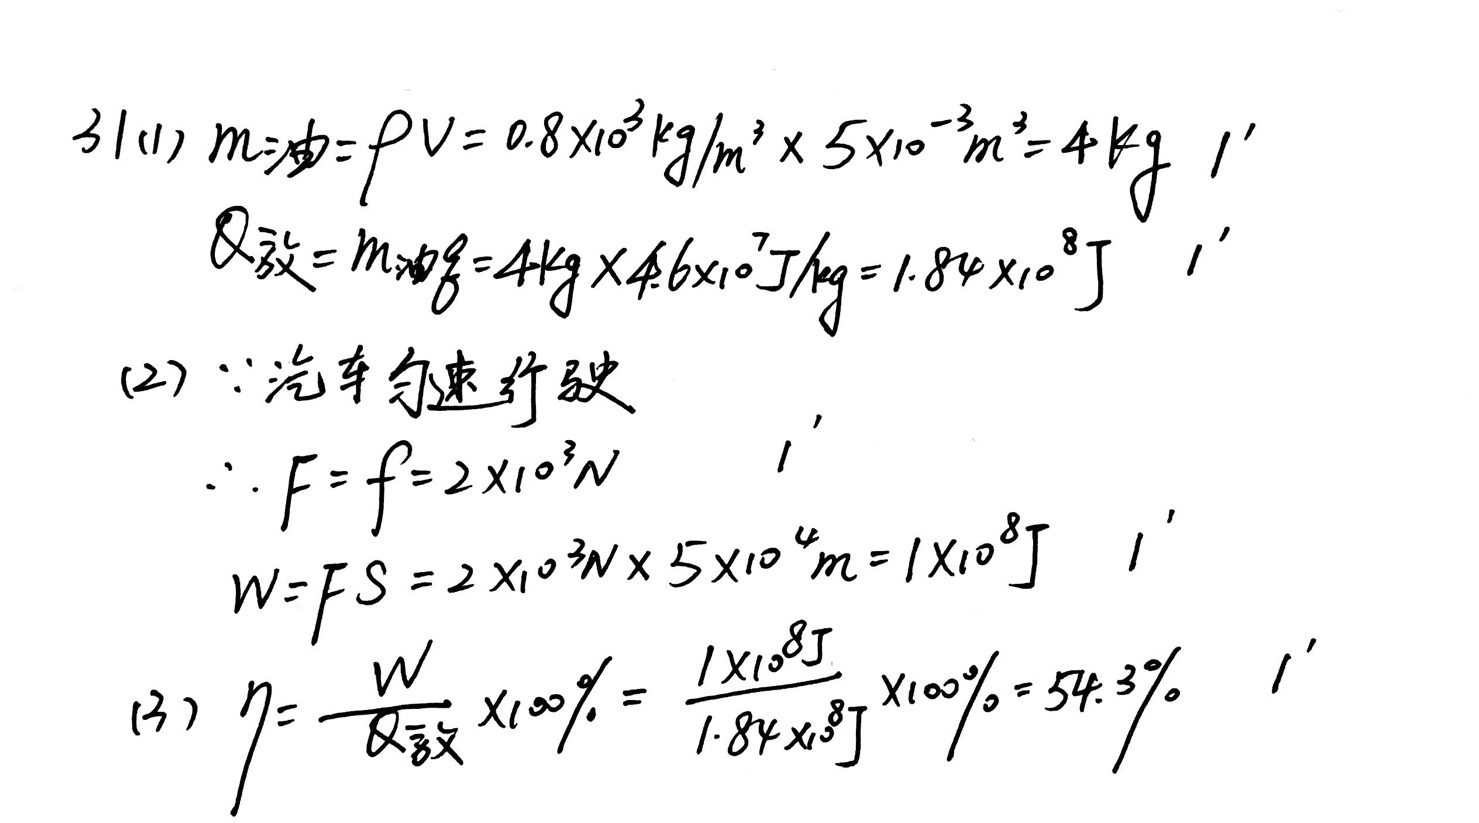 31(1) m油=ρV=0.8×10³kg/m³×5×10⁻³m³=4kg 1′
Q放=m油q=4kg×4.6×10⁷J/kg=1.84×10⁸J 1′
(2) ∵汽车匀速行驶
∴F=f=2×10³N 1′
W=FS=2×10³N×5×10⁴m=1×10⁸J 1′
(3) η=W/Q放×100%=1×10⁸J/1.84×10⁸J×100%=54.3% 1′